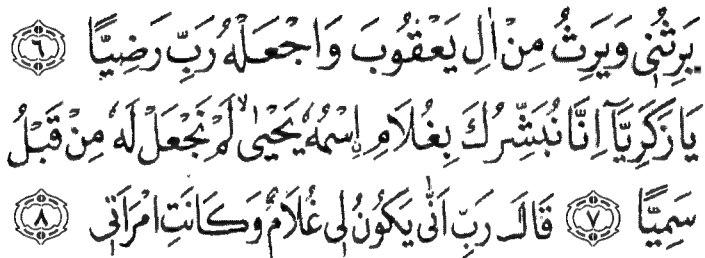 يَرِثُنٖى وَيَرِثُ مِنْ اٰلِ يَعْقُوبَ وَاجْعَلْهُ رَبِّ رَضِيًّا ﴿٦﴾
يَا زَكَرِيَّٓا اِنَّا نُبَشِّرُكَ بِغُلَامٍ اِسْمُهُ يَحْيٰىۙ لَمْ نَجْعَلْ لَهُ مِنْ قَبْلُ
سَمِيًّا ﴿٧﴾ قَالَ رَبِّ اَنّٰى يَكُونُ لٖى غُلَامٌ وَكَانَتِ امْرَاَتٖى ﴿٨﴾